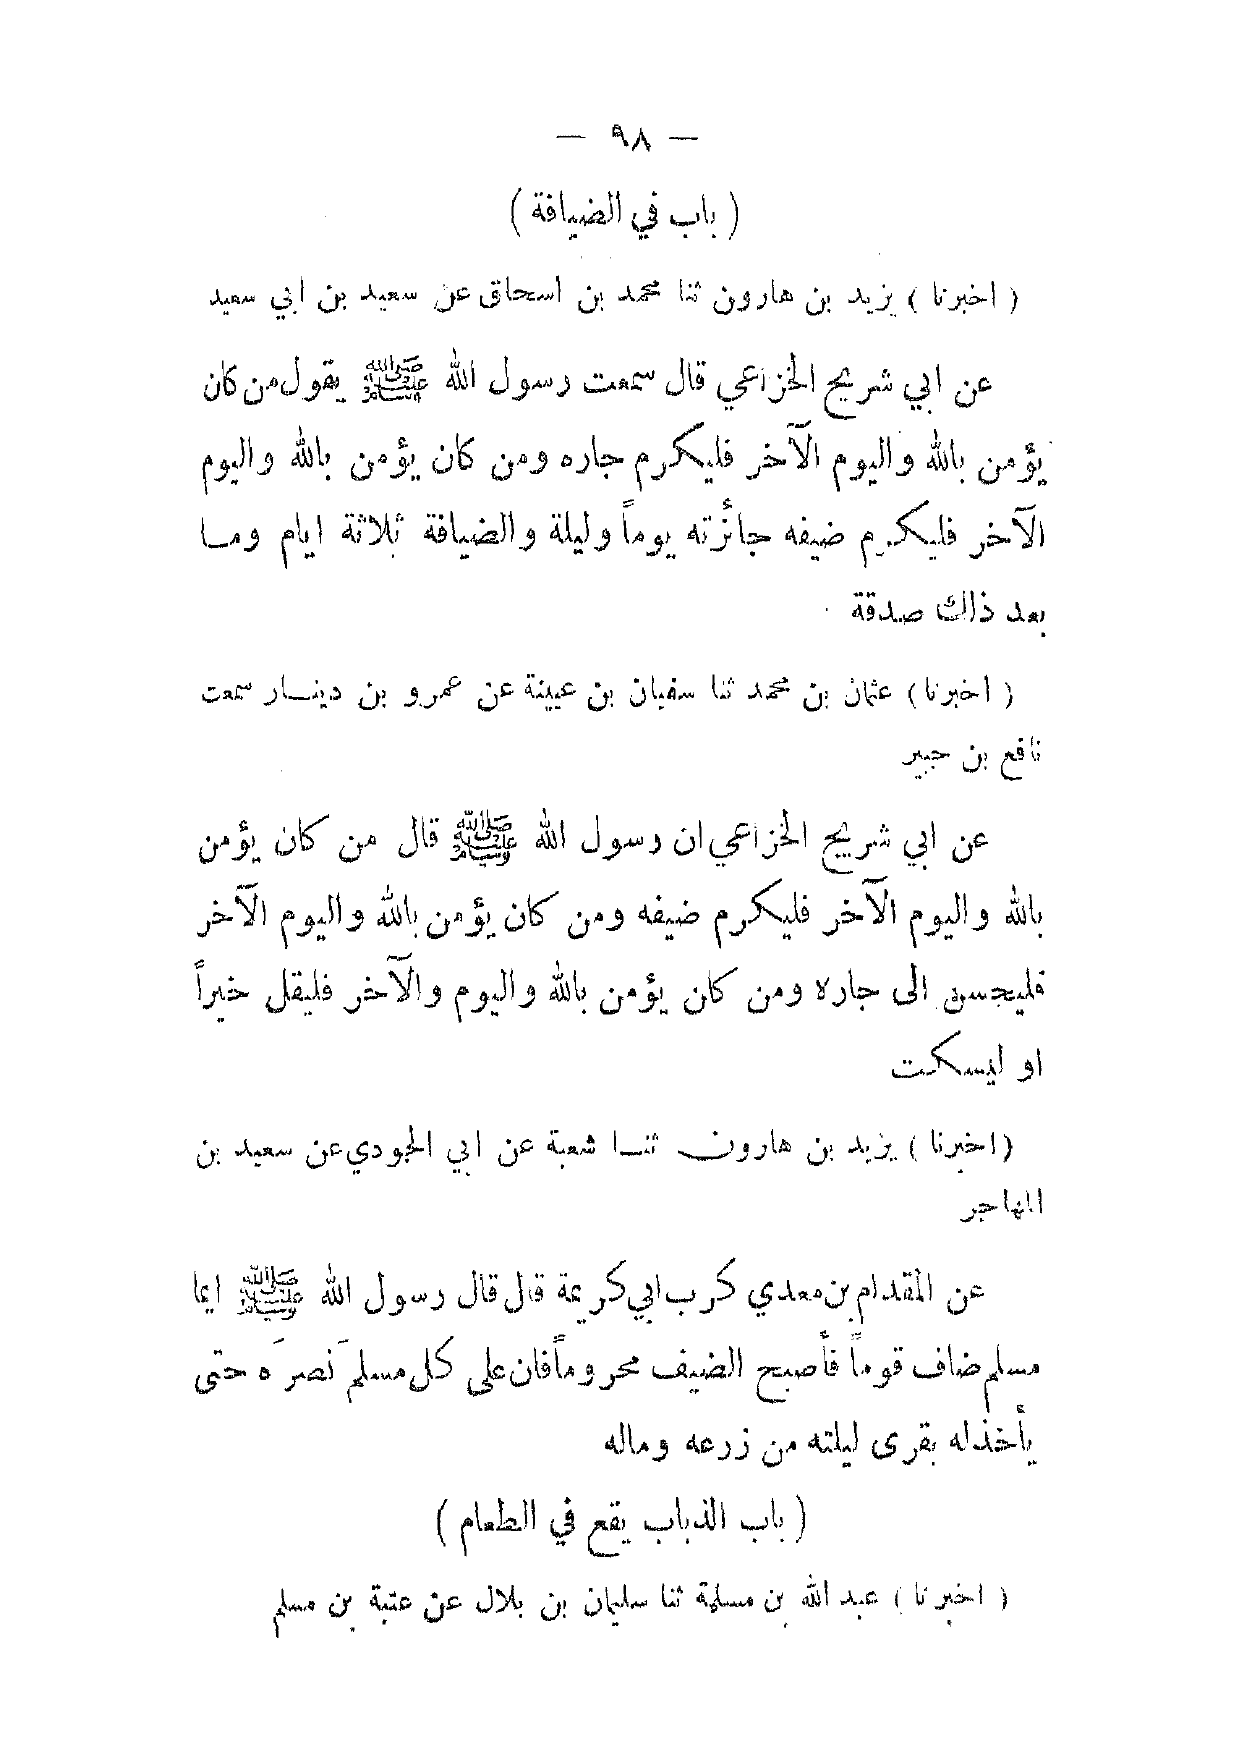 — ٩٨ —
( باب في الضيافة )
( اخبرنا ) يزيد بن هارون ثنا محمد بن اسحاق عن سعيد بن ابي سعيد
عن ابي شريح الخزاعي قال سمعت رسول الله ﷺ يقول من كان
يؤمن بالله واليوم الآخر فليكرم جاره ومن كان يؤمن بالله واليوم
الآخر فليكرم ضيفه جائزته يوماً وليلة والضيافة ثلاثة ايام وما
بعد ذالك صدقة
( اخبرنا ) عثمان بن محمد ثنا سفيان بن عيينة عن عمرو بن دينار سمعت
نافع بن جبير
عن ابي شريح الخزاعي ان رسول الله ﷺ قال من كان يؤمن
بالله واليوم الآخر فليكرم ضيفه ومن كان يؤمن بالله واليوم الآخر
فليحسن الى جاره ومن كان يؤمن بالله واليوم والآخر فليقل خيراً
او ليسكت
( اخبرنا ) يزيد بن هارون ثنا شعبة عن ابي الجودي عن سعيد بن
المهاجر
عن المقدام بن معدي كرب ابي كريمة قال قال رسول الله ﷺ ايما
مسلم ضاف قوماً فأصبح الضيف محروماً فان على كل مسلم نصرَه حتى
يأخذ له بقرى ليلته من زرعه وماله
( باب الذباب يقع في الطعام )
( اخبرنا ) عبد الله بن مسلمة ثنا سليمان بن بلال عن عتبة بن مسلم